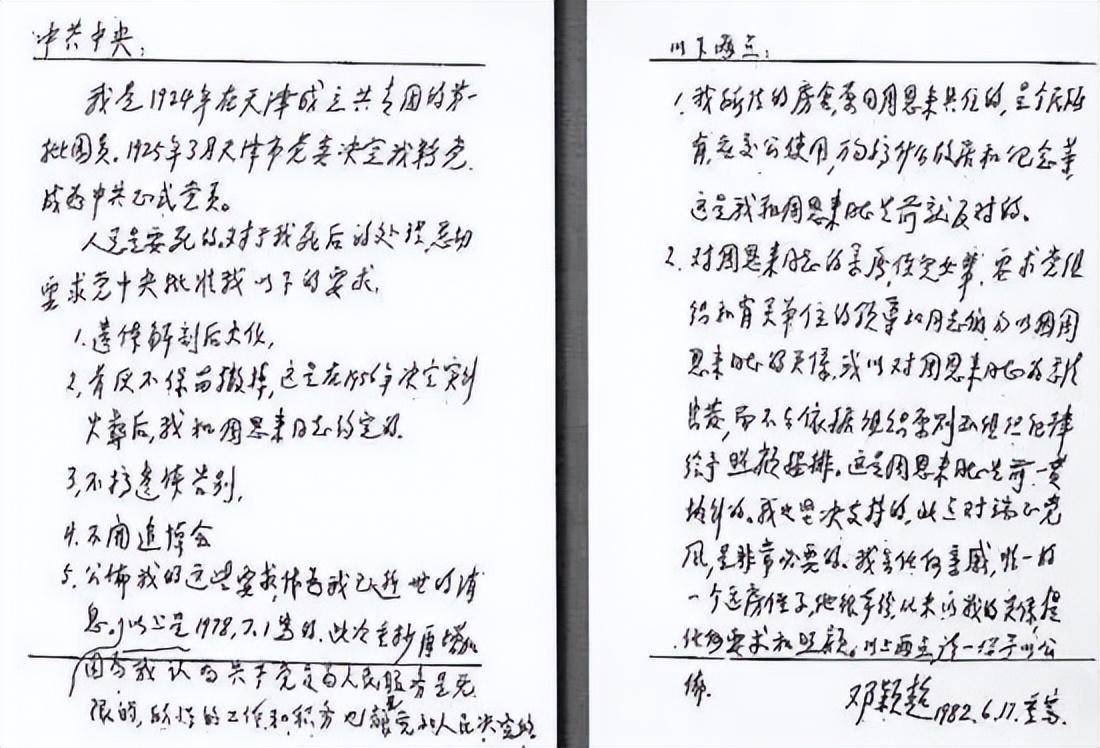 中共中央：
我是1924年在天津成立共青团的第一
批团员。1925年3月天津市党委决定我转党，
成为中共正式党员。
人总是要死的。对于我死后的处理，恳切
要求党中央批准我以下的要求，
1.遗体解剖后火化，
2.骨灰不保留，撒掉，这是在1956年决定实行
火葬后，我和周恩来同志约定的。
3.不搞遗体告别，
4.不开追悼会
5.公佈我的这些要求，作为我已逝世的消
息。以上是1978.7.1写的，此次重抄再增加
因为我认为共产党员为人民服务是无
限的，所作的工作和职务也都是党和人民决定的。
以下两点：
1.我所住的房舍，原同周恩来共住的，是全民所
有，应交公使用，万勿搞什么故居和纪念等，
这是我和周恩来同志生前就反对的。
2.对周恩来同志的亲属，侄儿女辈，要求党组
织和有关单位的领导和同志们，勿以因周
恩来同志的关系，或以对周恩来同志的感情
出发，而不去依据组织原则和组织纪律
给予照顾安排。这是周恩来同志生前一贯
执行的。我也坚决支持的。此点对端正党
风，是非常必要的。我无任何亲戚，唯一的
一个远房侄子，他很本分，从未以我的关系提
任何要求和照顾。以上两点请一并予以公
佈。
邓颖超 1982.6.17.重写